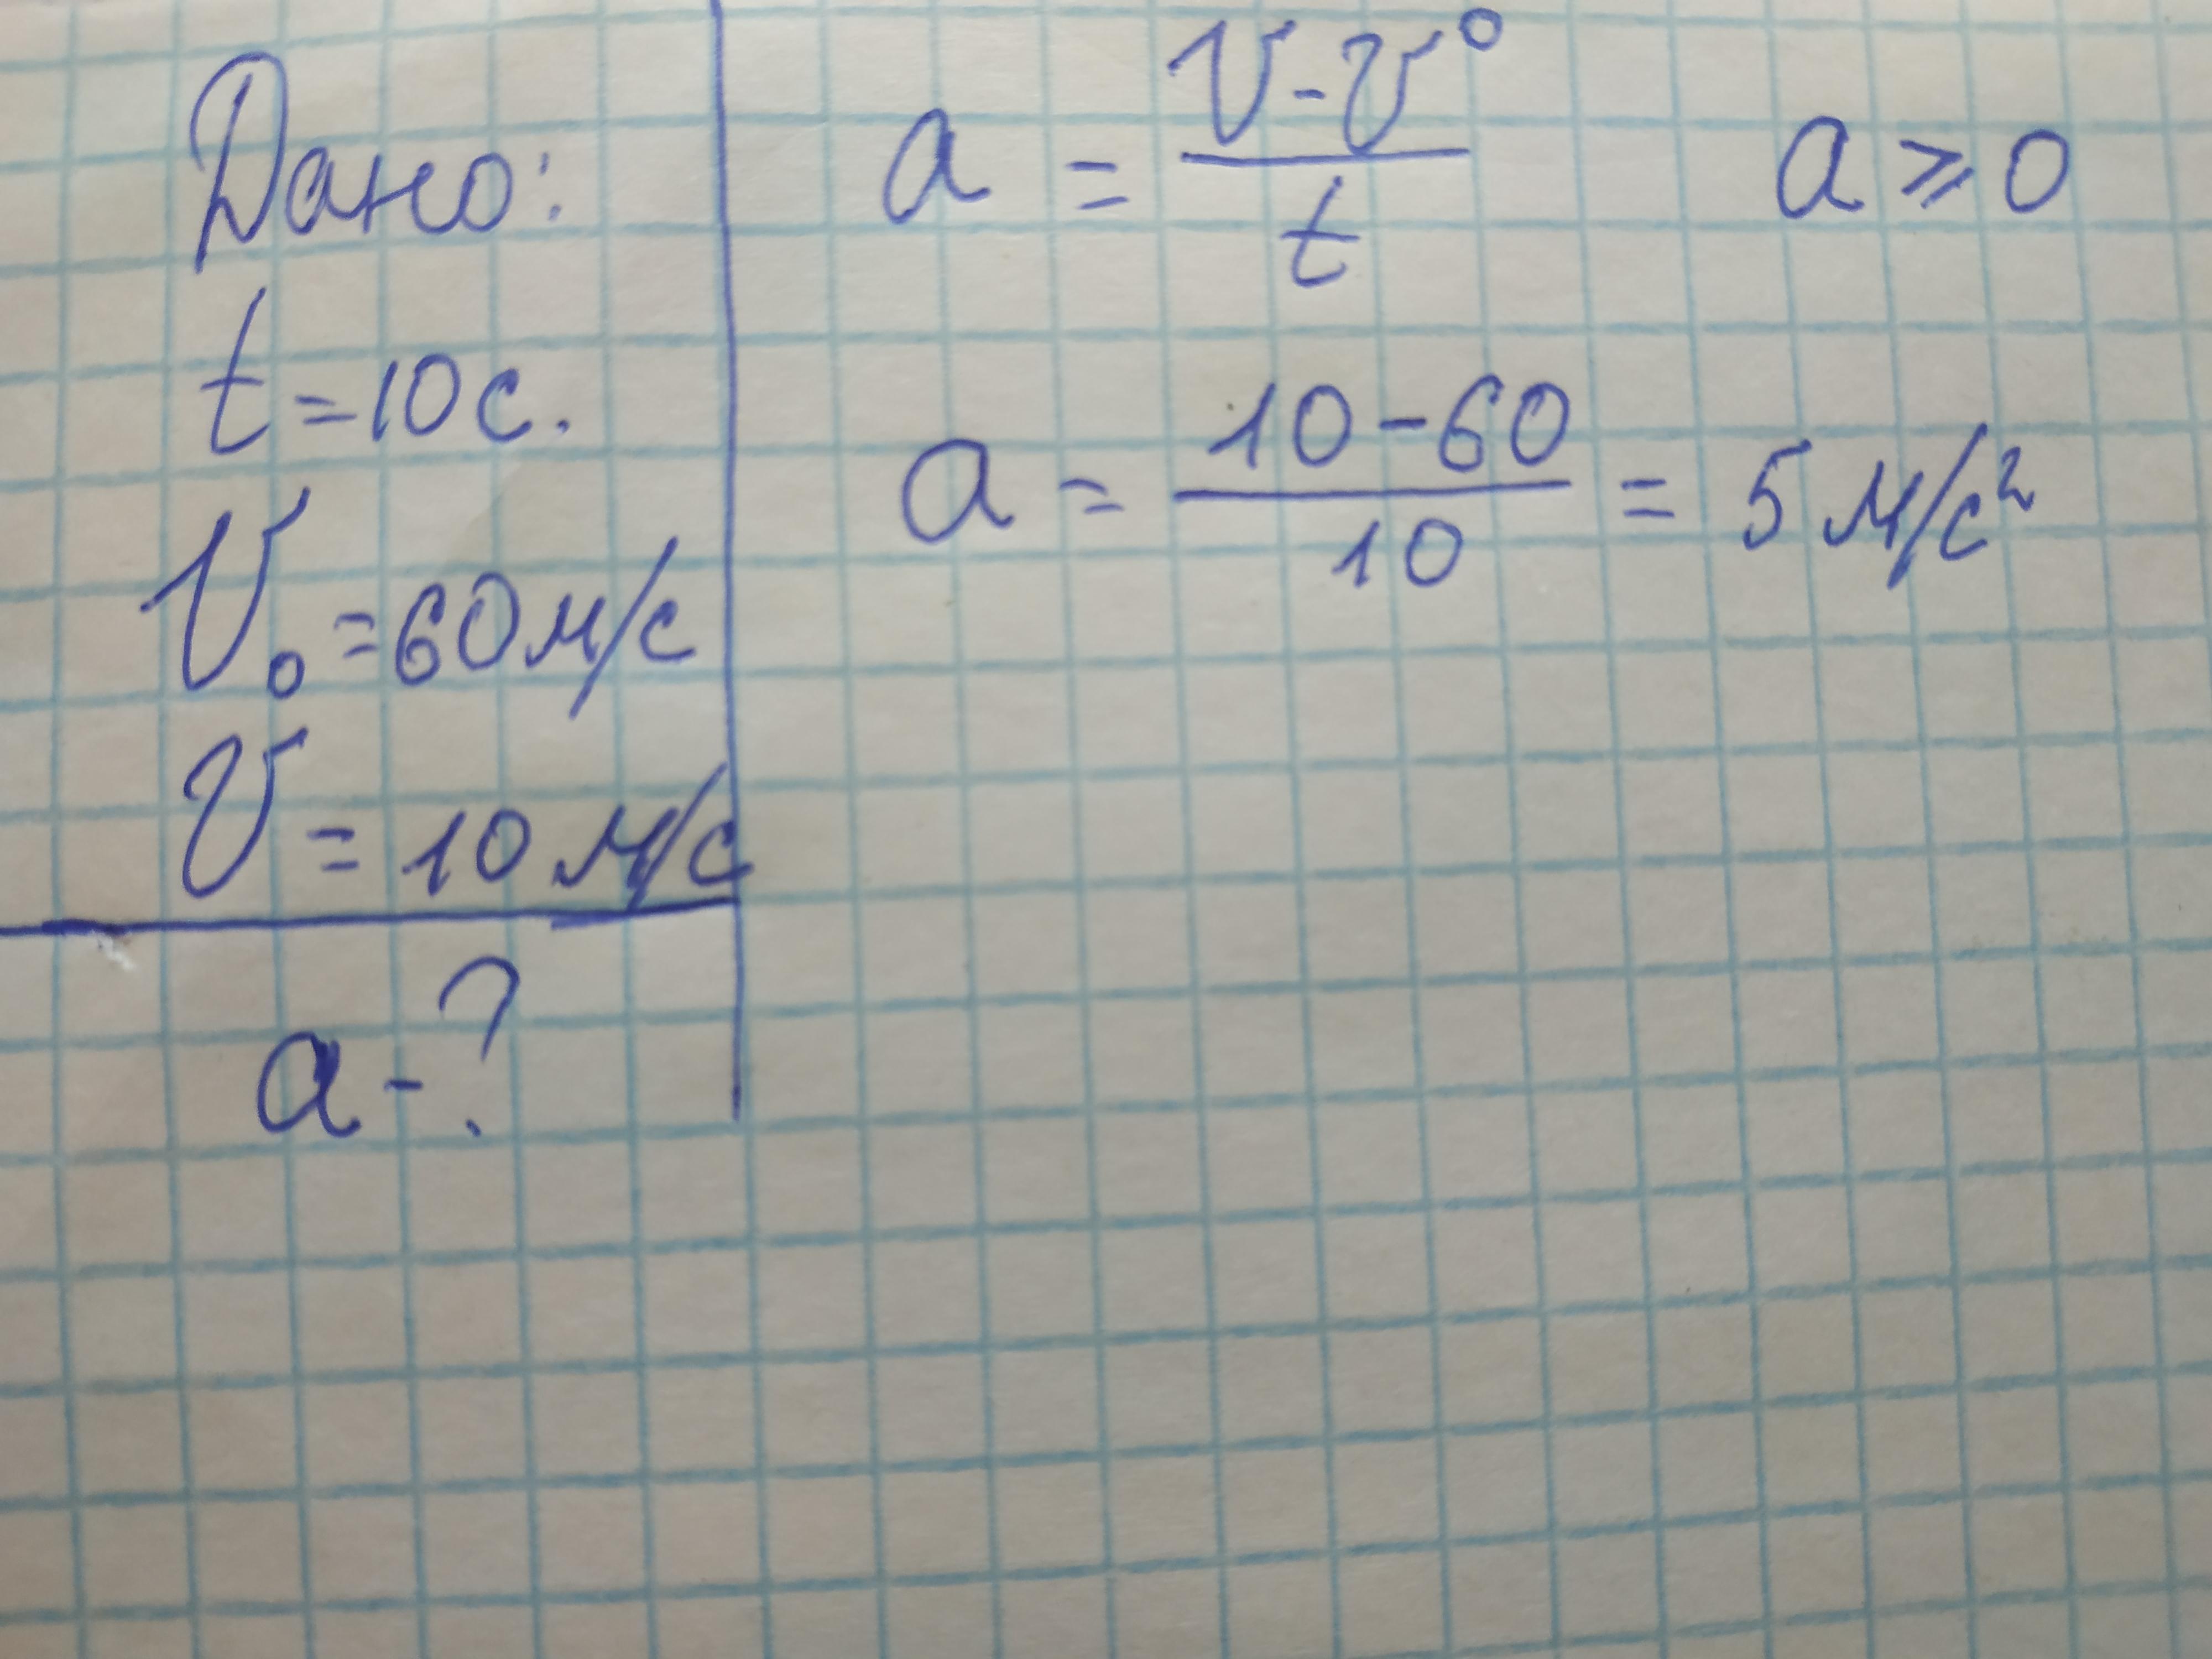 Дано:
t = 10 с.
V₀ = 60 м/с
V = 10 м/с
a - ?
a = (V - V⁰) / t
a ⩾ 0
a = (10 - 60) / 10 = 5 м/с²